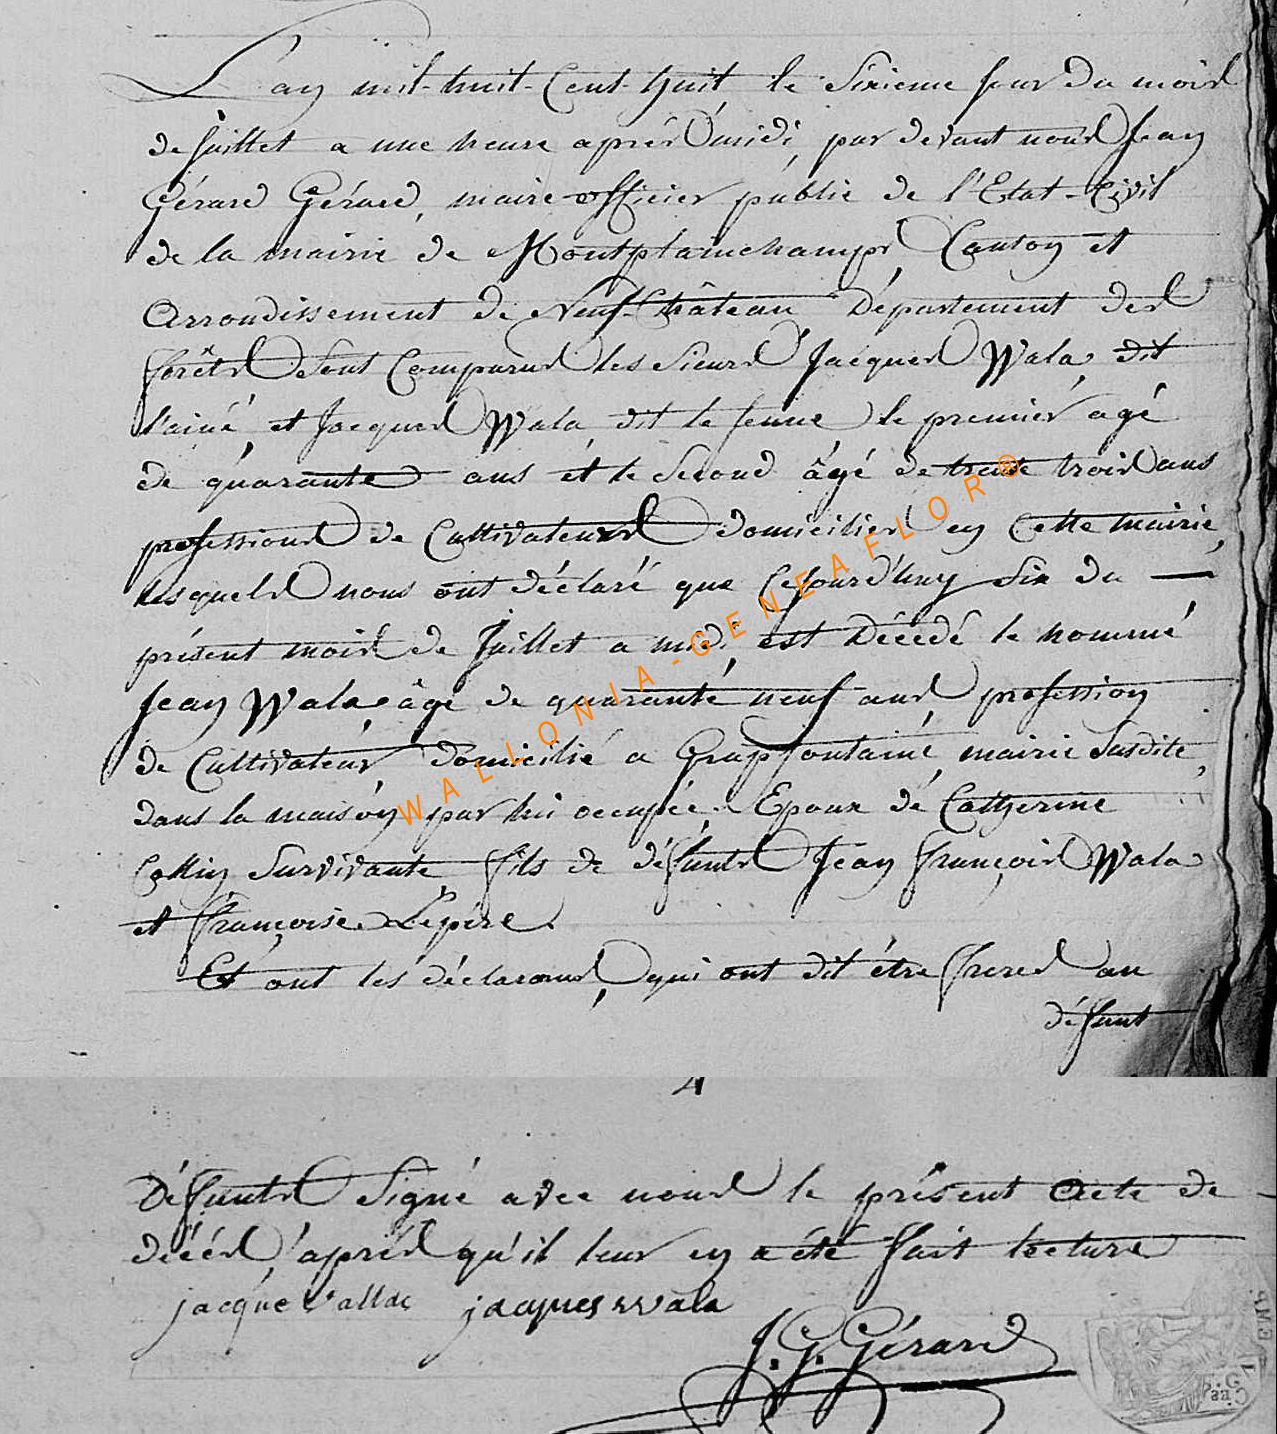 L'an mil-huit-Cent-huit le Sixieme jour du mois
de juillet a une heure après midi, par devant nous Jean
Gérard Gérard, maire officier public de l'Etat-Civil
de la mairie de Montplainchamps, Canton et
Arrondissement de Neuf-Château Département des
forêts Sont Comparus les Sieurs Jacques Wala dit
l'ainé, et Jacques Wala dit le jeune le premier agé
de quarante ans et le Second âgé de trente trois ans
professions de Cultivateurs domiciliés en Cette mairie,
lesquels nous ont déclaré que Cejourd'huy Six du
présent mois de Juillet a midi, est Décédé le nommé
Jean Wala âgé de quarante neuf ans, profession
de Cultivateur, domicilié a Grapfontaine, mairie Susdite,
dans la maison par lui occupée. Epoux de Catherine
Collin Survivante, fils de défunts Jean françois Wala
et françoise Lepère.
Et ont les déclarans, qui ont dit être freres au
défunt
Défunts Signé avec nous le présent Acte de
décés, après qu'il leur en a été fait lecture
jacque vallac jacques wala
J. G. Gérard
WALLONIA-GENEAFLOR®